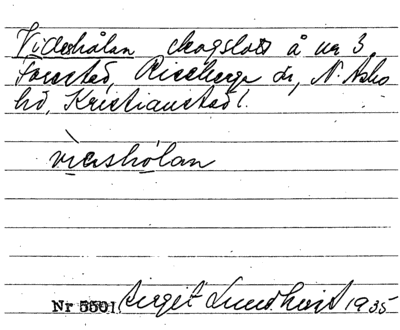 Viderhålan skogslott å nr 3
Forestad, Riseberga sn, N. Åsbo
hd, Kristianstad l.
vìershólan
Nr 5501. Birgit Lundkvist 1935